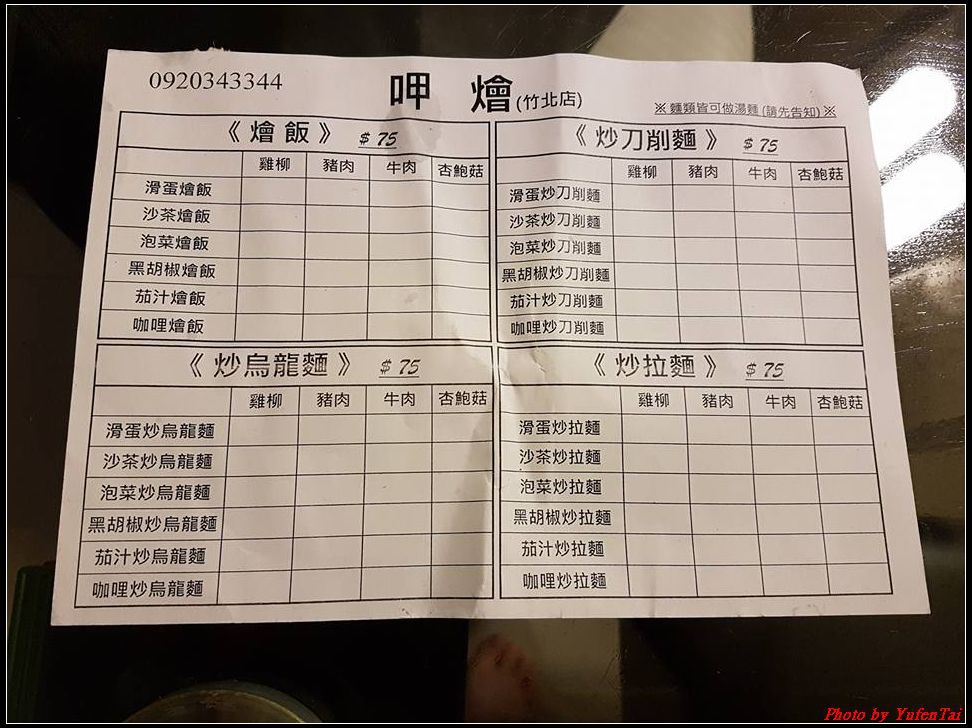 0920343344
呷 燴(竹北店)
※ 麵類皆可做湯麵 (請先告知) ※
《 燴 飯 》 $ 75
雞柳 豬肉 牛肉 杏鮑菇
滑蛋燴飯
沙茶燴飯
泡菜燴飯
黑胡椒燴飯
茄汁燴飯
咖哩燴飯
《 炒刀削麵 》 $ 75
雞柳 豬肉 牛肉 杏鮑菇
滑蛋炒刀削麵
沙茶炒刀削麵
泡菜炒刀削麵
黑胡椒炒刀削麵
茄汁炒刀削麵
咖哩炒刀削麵
《 炒烏龍麵 》 $ 75
雞柳 豬肉 牛肉 杏鮑菇
滑蛋炒烏龍麵
沙茶炒烏龍麵
泡菜炒烏龍麵
黑胡椒炒烏龍麵
茄汁炒烏龍麵
咖哩炒烏龍麵
《 炒拉麵 》 $ 75
雞柳 豬肉 牛肉 杏鮑菇
滑蛋炒拉麵
沙茶炒拉麵
泡菜炒拉麵
黑胡椒炒拉麵
茄汁炒拉麵
咖哩炒拉麵
Photo by YufenTai